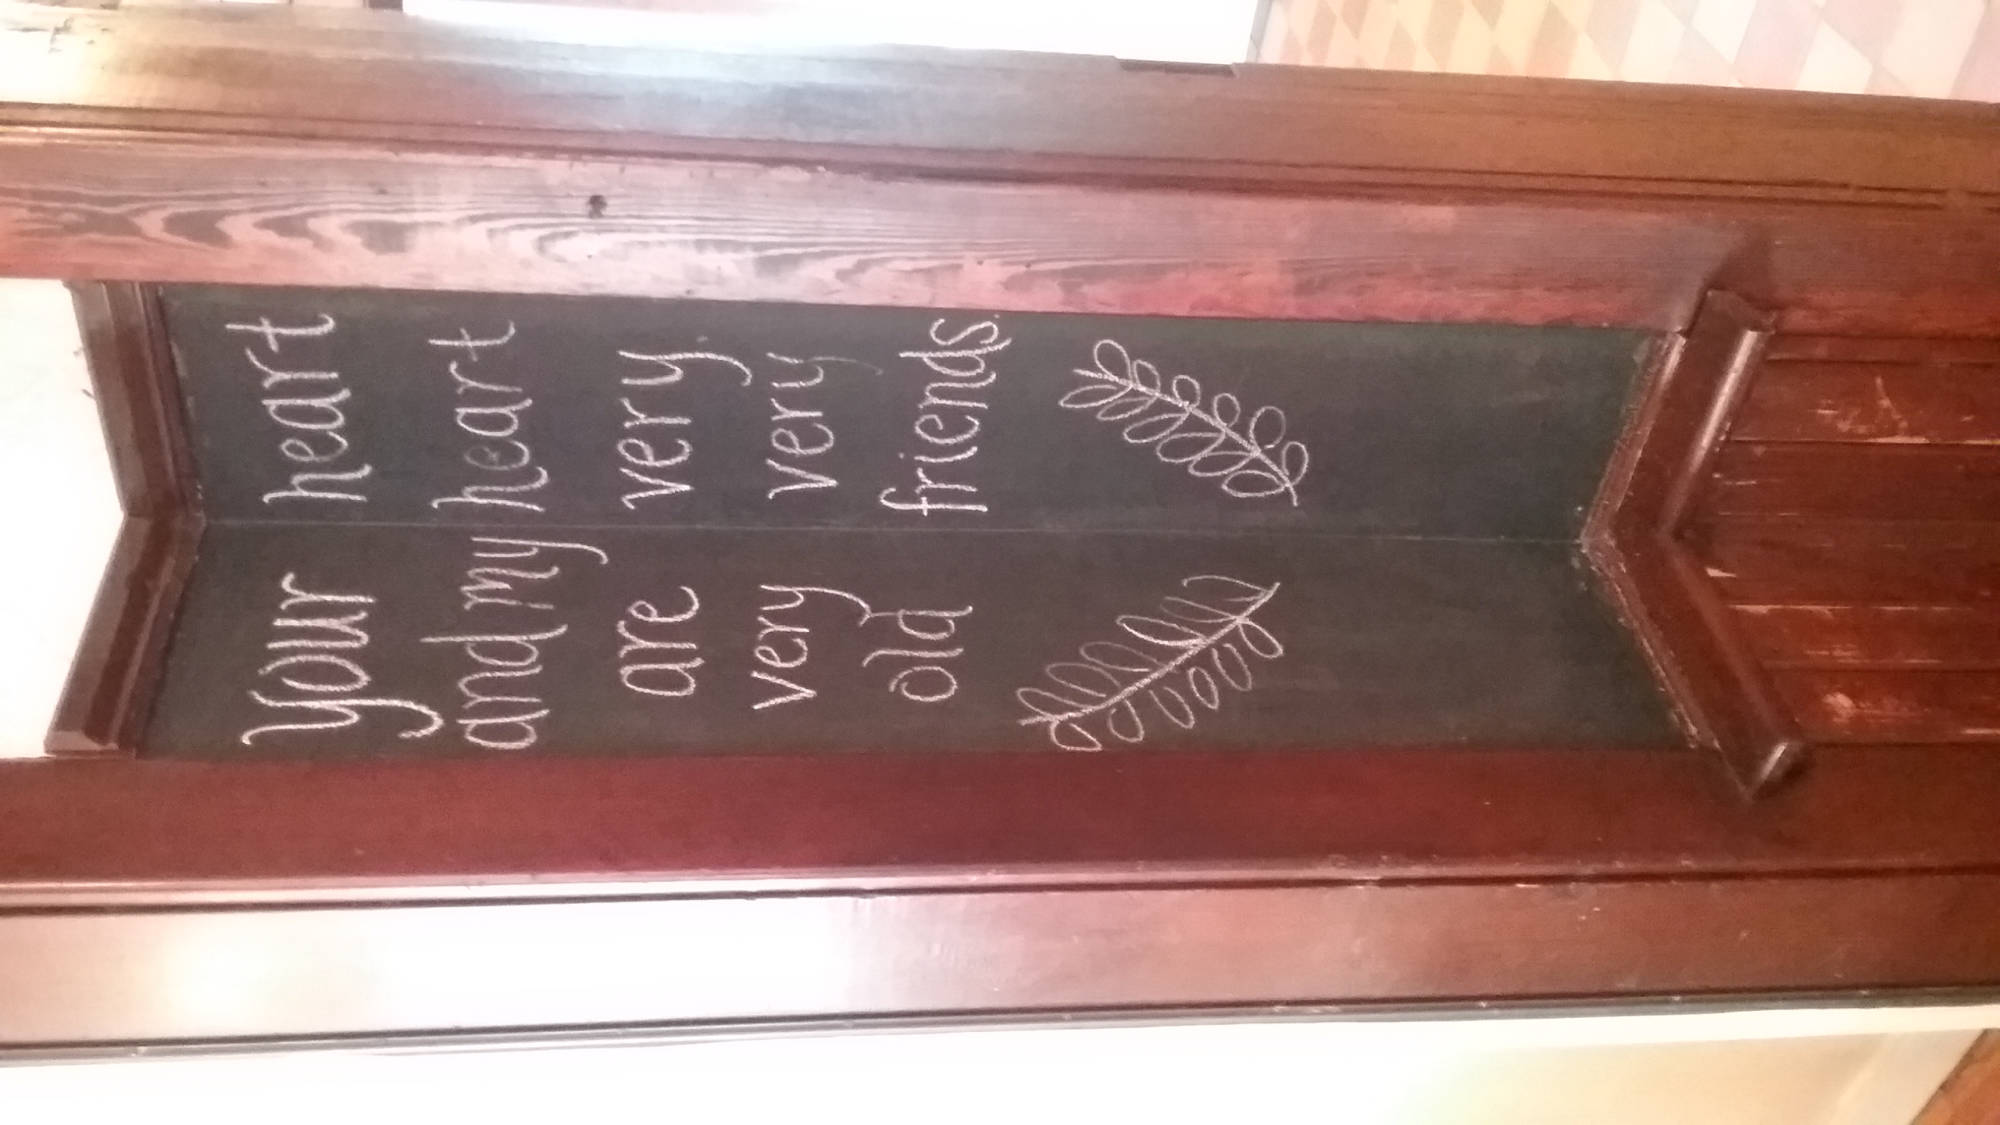 your heart
and my heart
are very
very very
old friends.